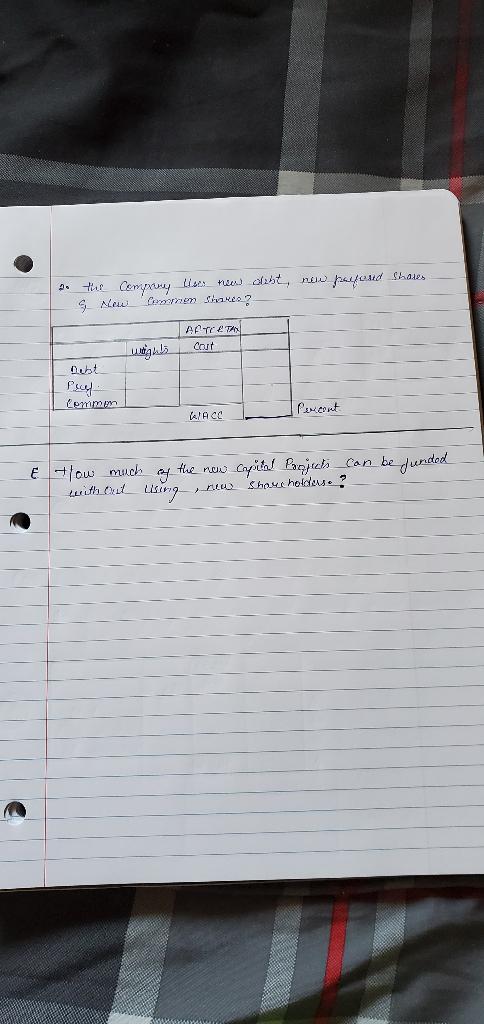 2. the Company Uses new debt, new prefered Shares
& New Common Shares?
AFTER TAX
weights Cost
Debt
Pref.
Common
WACC Percent
E How much of the new Capital Projects can be funded
without using, new shareholders.?